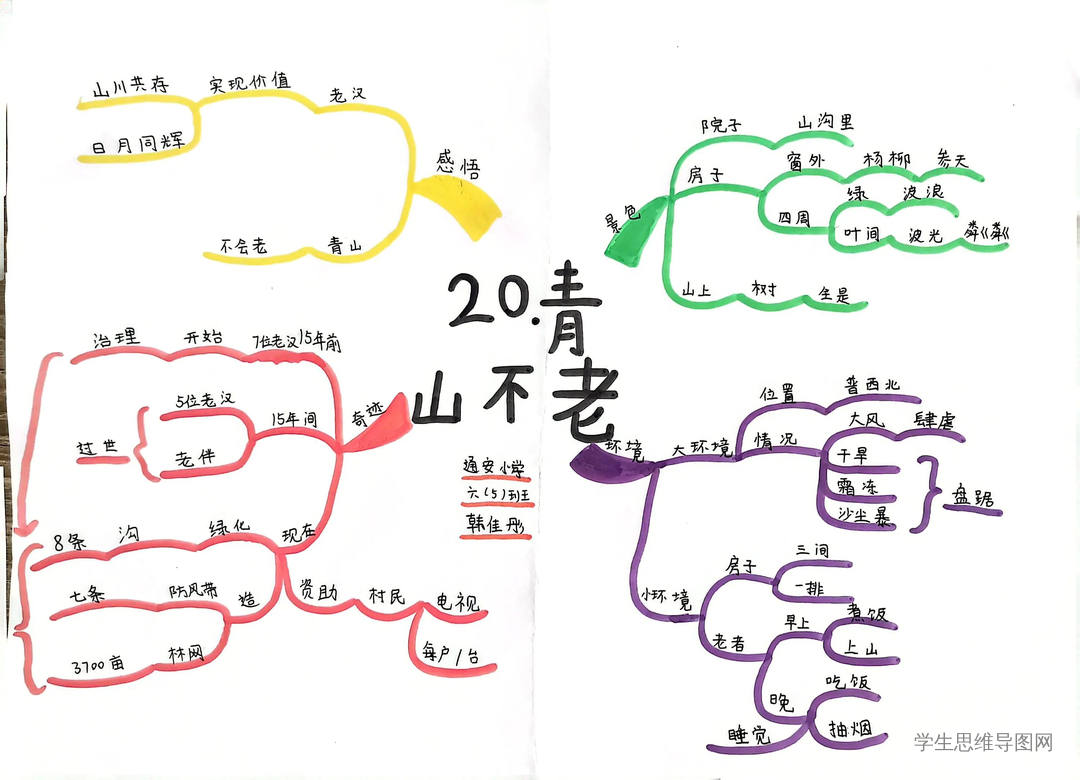 20.青
山不老
景色
院子
山沟里
房子
窗外
杨柳
参天
四周
绿
波浪
叶间
波光
粼粼
山上
树
全是
环境
大环境
位置
晋西北
情况
大风
肆虐
干旱
霜冻
沙尘暴
盘踞
小环境
房子
三间
一排
老者
早上
煮饭
上山
晚
吃饭
抽烟
睡觉
奇迹
15年前
7位老汉
开始
治理
15年间
5位老汉
老伴
过世
现在
绿化
沟
8条
造
防风带
七条
林网
3700亩
资助
村民
电视
每户1台
感悟
老汉
实现价值
山川共存
日月同辉
青山
不会老
通安小学
六(5)班王
韩佳彤
学生思维导图网